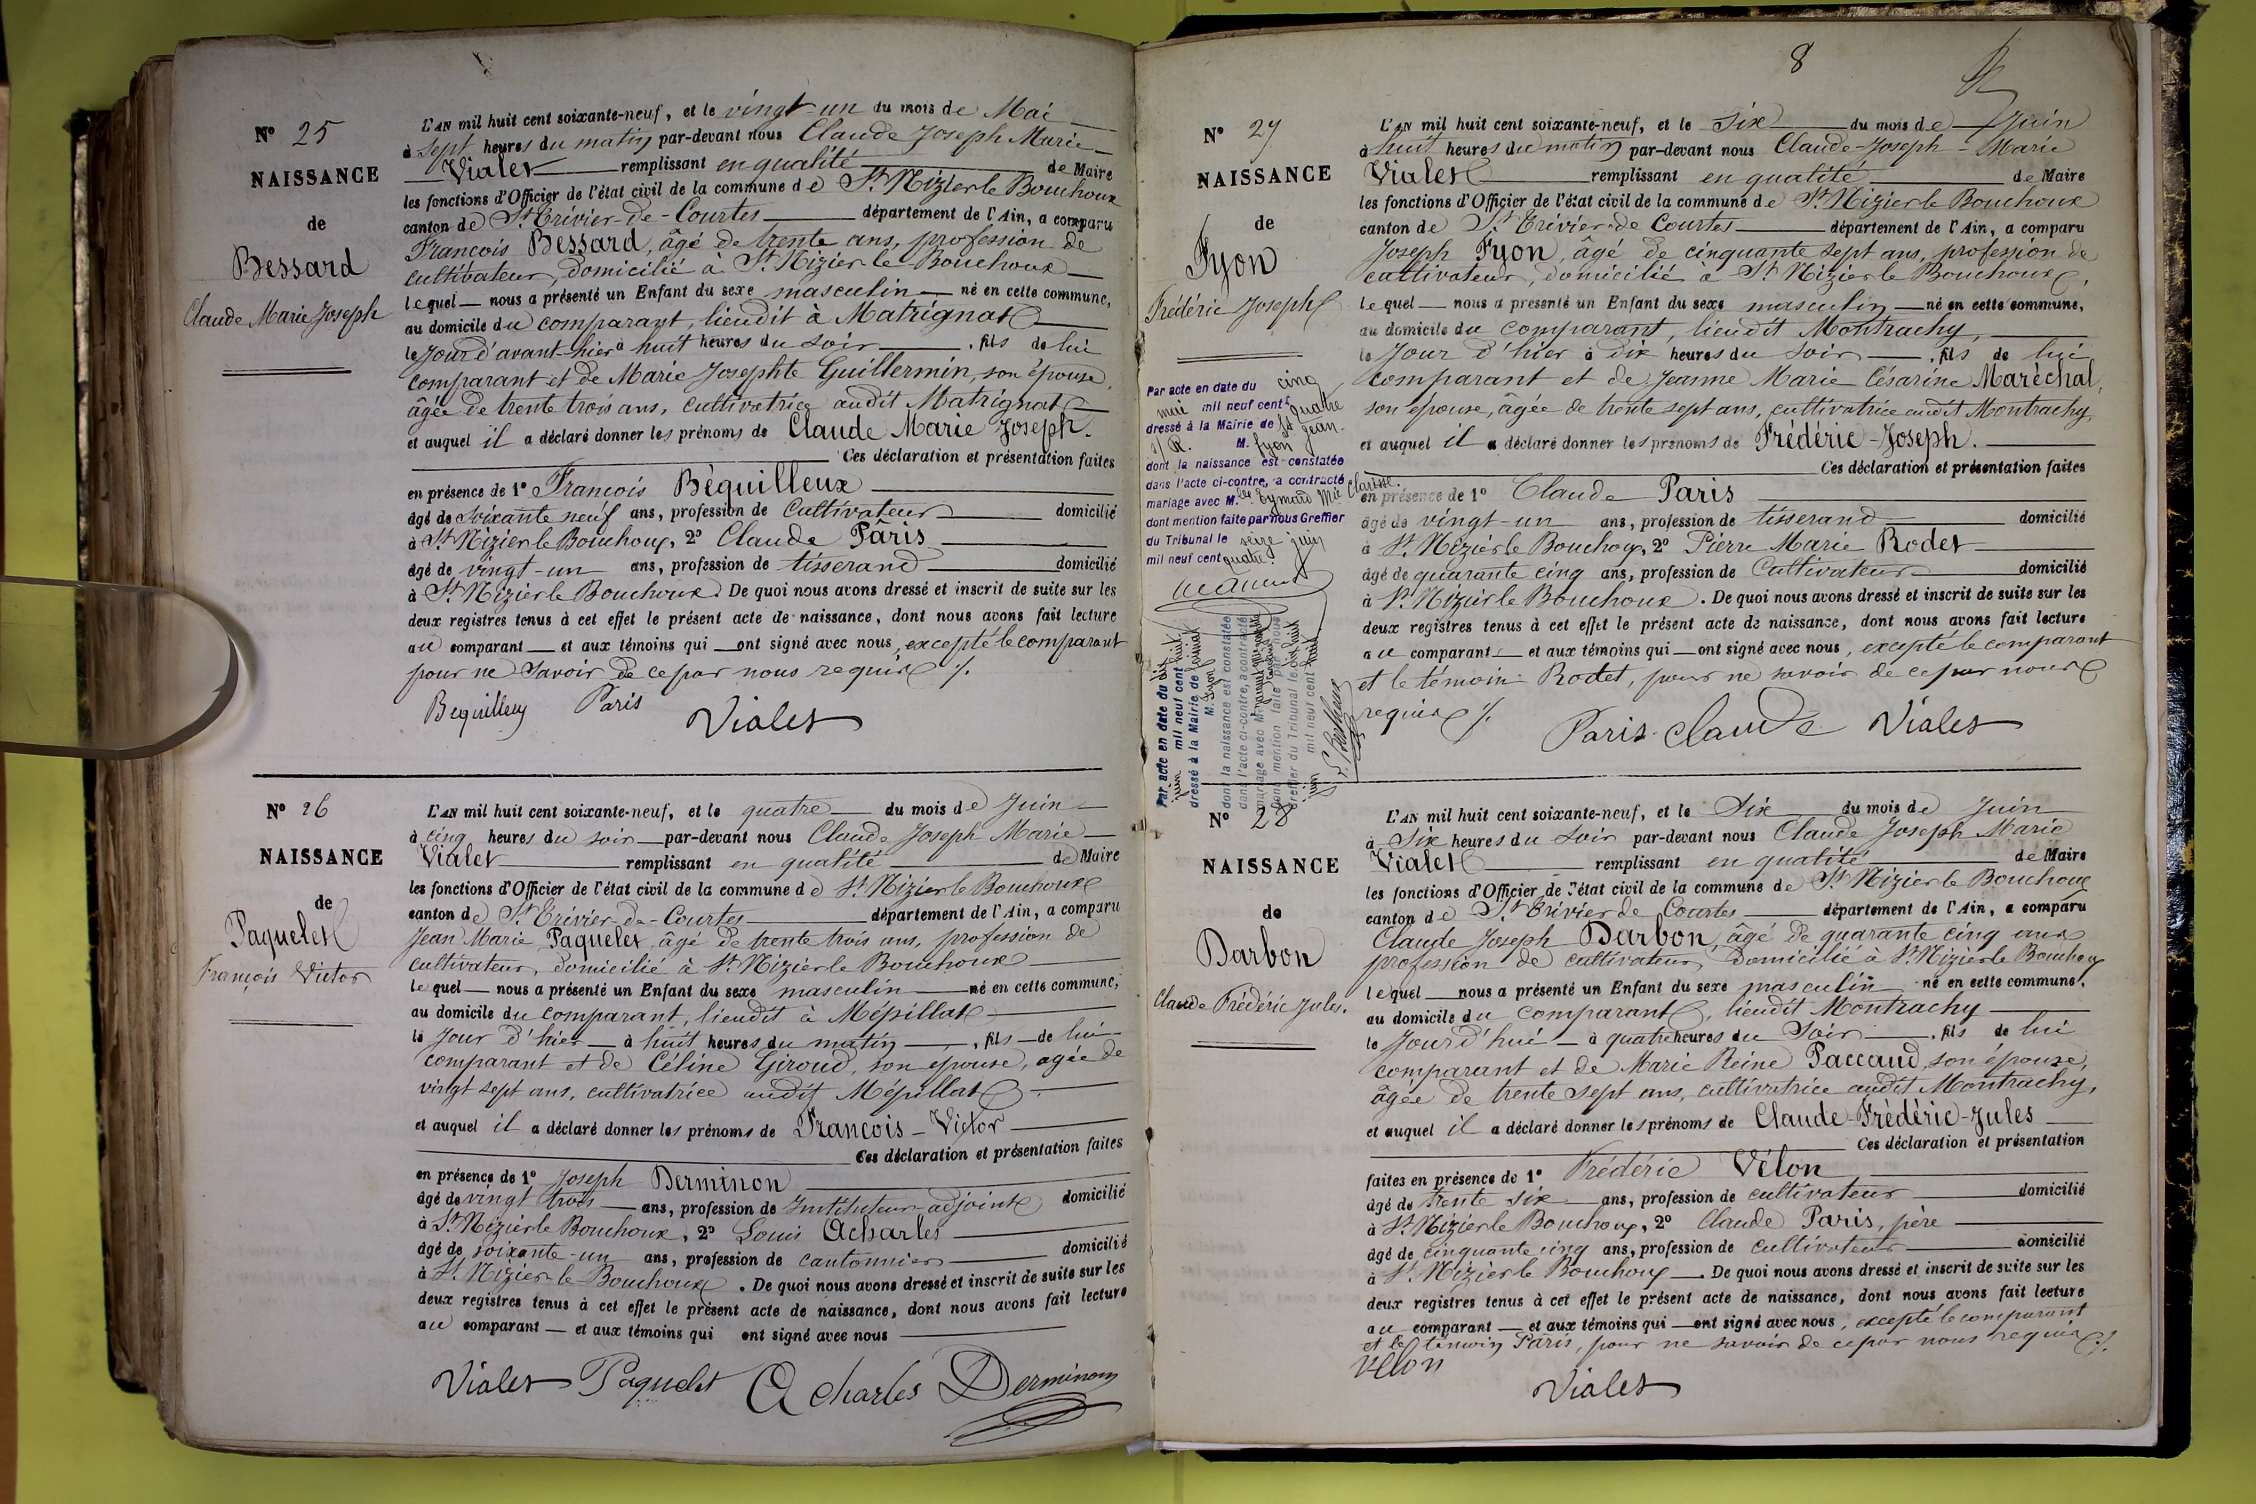 N° 25
NAISSANCE
de
Bessard
Claude Marie Joseph
L'AN mil huit cent soixante-neuf, et le vingt-un du mois de Mai
à sept heures du matin par-devant nous Claude Joseph Marie
Vialet remplissant en qualité de Maire
les fonctions d'Officier de l'état civil de la commune de St Nizier le Bouchoux
canton de St Trivier-de-Courtes département de l'Ain, a comparu
François Bessard, âgé de trente ans, profession de
cultivateur, domicilié à St Nizier le Bouchoux
lequel nous a présenté un Enfant du sexe masculin né en cette commune,
au domicile du comparant, lieudit à Matrignat
le jour d'avant-hier à huit heures du soir, fils de lui
comparant et de Marie Josephte Guillermin, son épouse,
âgée de trente trois ans, cultivatrice audit Matrignat
et auquel il a déclaré donner les prénoms de Claude Marie Joseph.
Ces déclaration et présentation faites
en présence de 1° François Béquilleux
âgé de soixante neuf ans, profession de cultivateur domicilié
à St Nizier le Bouchoux, 2° Claude Pâris
âgé de vingt-un ans, profession de tisserand domicilié
à St Nizier le Bouchoux. De quoi nous avons dressé et inscrit de suite sur les
deux registres tenus à cet effet le présent acte de naissance, dont nous avons fait lecture
au comparant et aux témoins qui ont signé avec nous, excepté le comparant
pour ne savoir de ce par nous requis ./.
Bequilleux Paris Vialet
N° 26
NAISSANCE
de
Paquelet
François Victor
L'AN mil huit cent soixante-neuf, et le quatre du mois de Juin
à cinq heures du soir par-devant nous Claude Joseph Marie
Vialet remplissant en qualité de Maire
les fonctions d'Officier de l'état civil de la commune de St Nizier le Bouchoux
canton de St Trivier-de-Courtes département de l'Ain, a comparu
Jean Marie Paquelet, âgé de trente trois ans, profession de
cultivateur, domicilié à St Nizier le Bouchoux
lequel nous a présenté un Enfant du sexe masculin né en cette commune,
au domicile du comparant, lieudit à Mépillat
le jour d'hier à huit heures du matin, fils de lui
comparant et de Céline Giroud, son épouse, agée de
vingt sept ans, cultivatrice audit Mépillat
et auquel il a déclaré donner les prénoms de François-Victor
Ces déclaration et présentation faites
en présence de 1° Joseph Derminon
âgé de vingt trois ans, profession de Instituteur-adjoint domicilié
à St Nizier le Bouchoux, 2° Louis Acharles
âgé de soixante-un ans, profession de cantonnier domicilié
à St Nizier le Bouchoux. De quoi nous avons dressé et inscrit de suite sur les
deux registres tenus à cet effet le présent acte de naissance, dont nous avons fait lecture
au comparant et aux témoins qui ont signé avec nous
Vialet Paquelet Acharles Derminon
8
N° 27
NAISSANCE
de
Fyon
Frédéric Joseph
Par acte en date du cinq
mai mil neuf cent quatre
dressé à la Mairie de St Jean
s/ R. M. Fyon
dont la naissance est constatée
dans l'acte ci-contre, a contracté
mariage avec M. elle Eymard Mie Clarisse.
dont mention faite par nous Greffier
du Tribunal le seize juin
mil neuf cent quatre.
Par acte en date du dix
juin mil neuf cent huit
dressé à la Mairie de
M. Fyon
dont la naissance est constatée
dans l'acte ci-contre, a contracté
mariage avec M.
dont mention faite par nous
Greffier du Tribunal le dix huit
juin mil neuf cent huit
L'AN mil huit cent soixante-neuf, et le Six du mois de Juin
à huit heures du matin par-devant nous Claude-Joseph-Marie
Vialet remplissant en qualité de Maire
les fonctions d'Officier de l'état civil de la commune de St Nizier le Bouchoux
canton de St Trivier de Courtes département de l'Ain, a comparu
Joseph Fyon, âgé de cinquante sept ans, profession de
cultivateur, domicilié à St Nizier le Bouchoux,
lequel nous a présenté un Enfant du sexe masculin né en cette commune,
au domicile du comparant, lieudit Montrachy,
le jour d'hier à dix heures du soir, fils de lui
comparant et de Jeanne Marie Césarine Maréchal,
son épouse, âgée de trente sept ans, cultivatrice audit Montrachy,
et auquel il a déclaré donner les prénoms de Frédéric-Joseph.
Ces déclaration et présentation faites
en présence de 1° Claude Paris
âgé de vingt-un ans, profession de tisserand domicilié
à St Nizier le Bouchoux, 2° Pierre Marie Rodet
âgé de quarante cinq ans, profession de Cultivateur domicilié
à St Nizier le Bouchoux. De quoi nous avons dressé et inscrit de suite sur les
deux registres tenus à cet effet le présent acte de naissance, dont nous avons fait lecture
au comparant et aux témoins qui ont signé avec nous, excepté le comparant
et le témoin Rodet, pour ne savoir de ce par nous
requis ./.
Paris Claude Vialet
N° 28
NAISSANCE
de
Darbon
Claude Frédéric Jules.
L'AN mil huit cent soixante-neuf, et le Six du mois de Juin
à Six heures du soir par-devant nous Claude Joseph Marie
Vialet remplissant en qualité de Maire
les fonctions d'Officier de l'état civil de la commune de St Nizier le Bouchoux
canton de St Trivier de Courtes département de l'Ain, a comparu
Claude Joseph Darbon, âgé de quarante cinq ans
profession de cultivateur, domicilié à St Nizier le Bouchoux
lequel nous a présenté un Enfant du sexe masculin né en cette commune,
au domicile du comparant, lieudit Montrachy
le jourd'hui à quatre heures du Soir, fils de lui
comparant et de Marie Reine Paccaud, son épouse,
âgée de trente sept ans, cultivatrice audit Montrachy,
et auquel il a déclaré donner les prénoms de Claude-Frédéric-Jules
Ces déclaration et présentation
faites en présence de 1° Frédéric Vélon
âgé de trente six ans, profession de cultivateur domicilié
à St Nizier le Bouchoux, 2° Claude Paris, père
âgé de cinquante cinq ans, profession de cultivateur domicilié
à St Nizier le Bouchoux. De quoi nous avons dressé et inscrit de suite sur les
deux registres tenus à cet effet le présent acte de naissance, dont nous avons fait lecture
au comparant et aux témoins qui ont signé avec nous, excepté le comparant
et le témoin Paris, pour ne savoir de ce par nous requis ./.
Vélon
Vialet